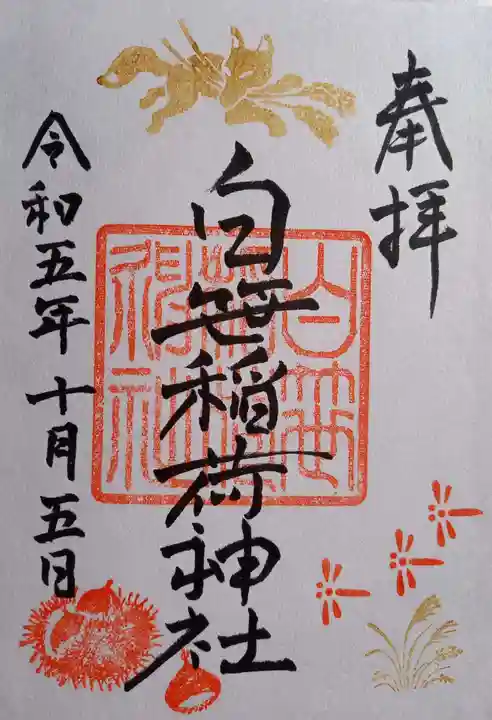 奉拝
白笹稲荷神社
白笹稲荷神社
令和五年十月五日